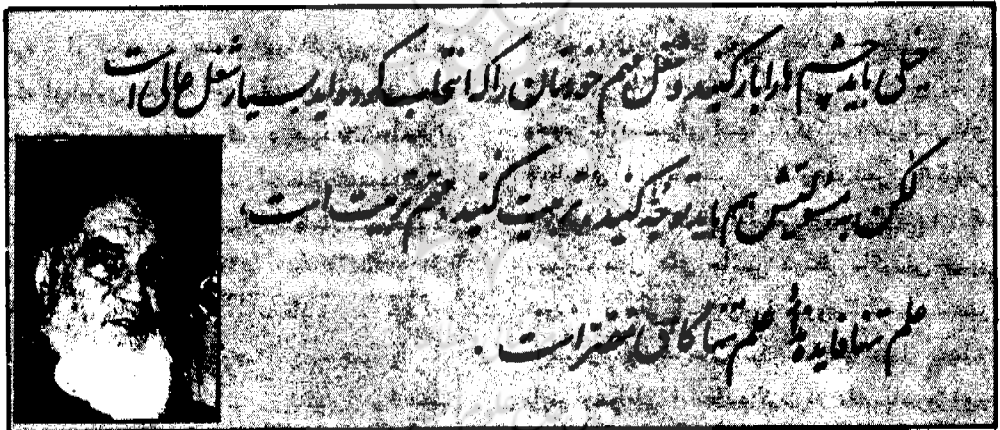 خیلی باید چشم را باز کنید و شغل مهم خودتان را که انتخاب کرده‌اید بسیار شغل عالی است
لکن به مسئولیتش هم باید توجه کنید و تربیت کنید، مهم تربیت است،
علم تنها فایده علم تنها گاهی مضر است.